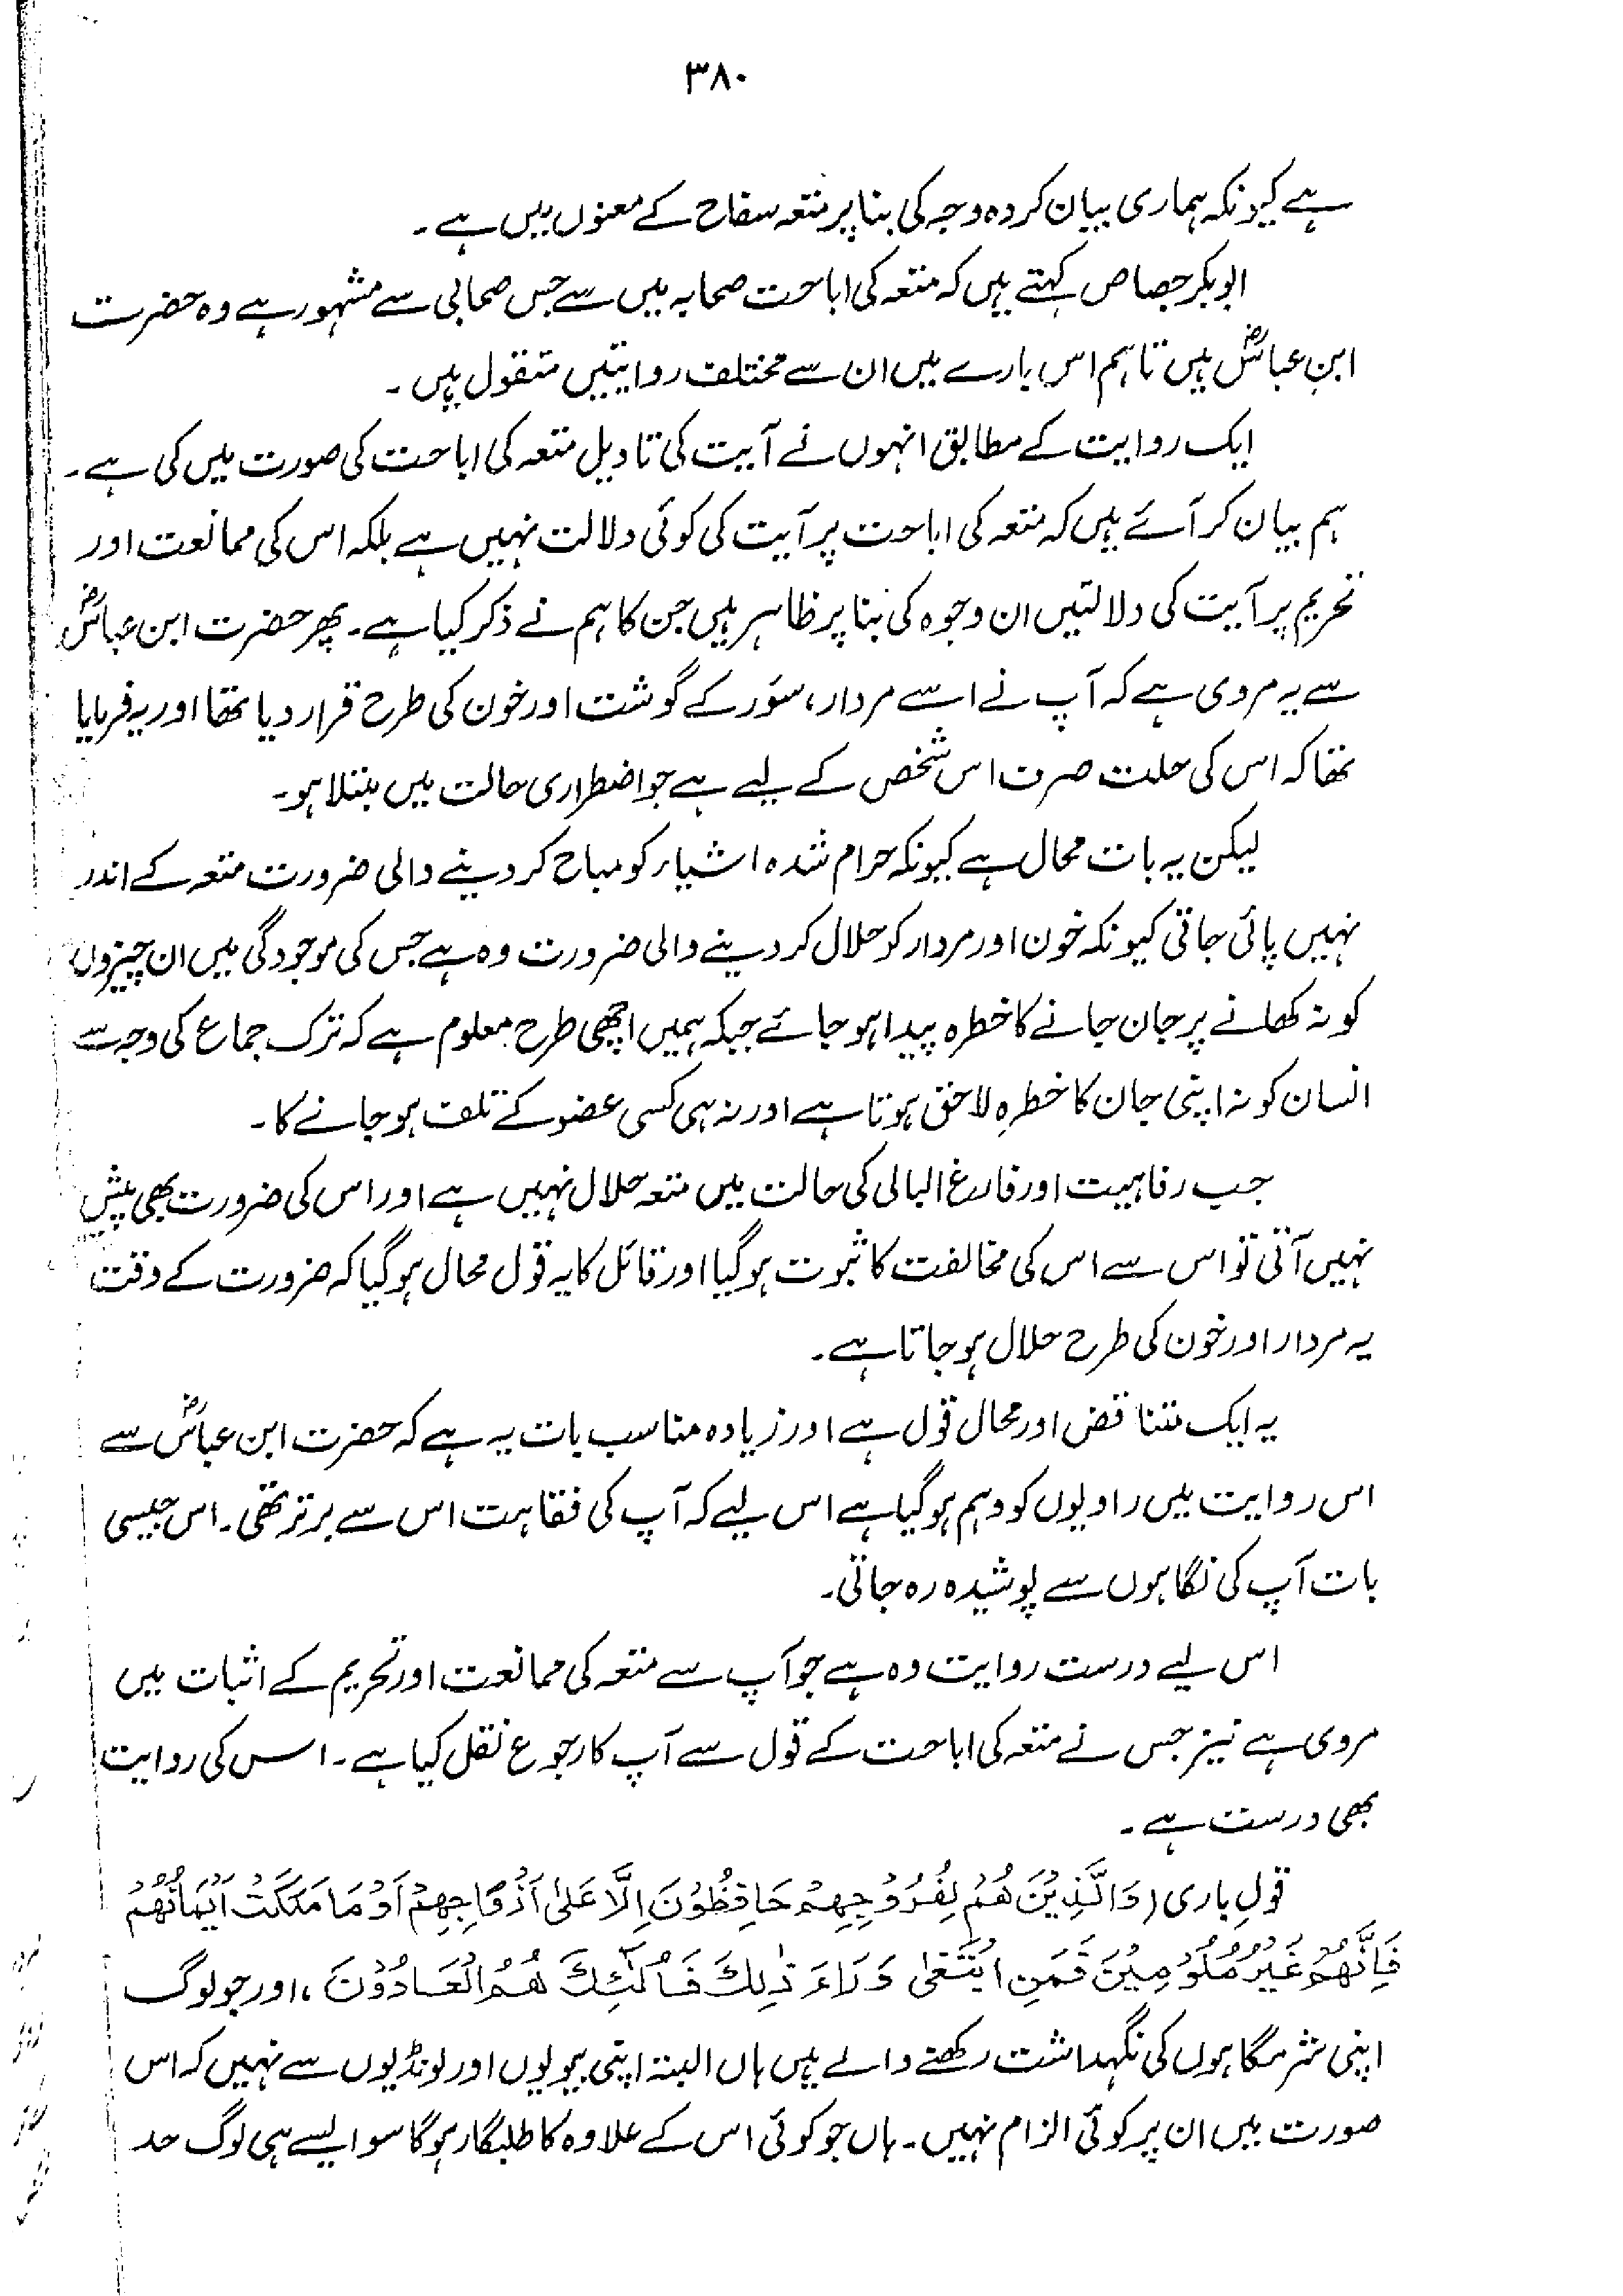 ۳۸۰
ہے کیونکہ ہماری بیان کردہ وجہ کی بنا پر متعہ سفاح کے معنوں میں ہے۔
ابوبکر جصاص کہتے ہیں کہ متعہ کی اباحت صحابہ میں سے جس صحابی سے مشہور ہے وہ حضرت
ابن عباسؓ ہیں تاہم اس بارے میں ان سے مختلف روایتیں منقول ہیں۔
ایک روایت کے مطابق انہوں نے آیت کی تاویل متعہ کی اباحت کی صورت میں کی ہے۔
ہم بیان کر آئے ہیں کہ متعہ کی اباحت پر آیت کی کوئی دلالت نہیں ہے بلکہ اس کی ممانعت اور
تحریم پر آیت کی دلالتیں ان وجوہ کی بنا پر ظاہر ہیں جن کا ہم نے ذکر کیا ہے۔ پھر حضرت ابن عباسؓ
سے یہ مروی ہے کہ آپ نے اسے مردار، سؤر کے گوشت اور خون کی طرح قرار دیا تھا اور یہ فرمایا
تھا کہ اس کی حلت صرف اس شخص کے لیے ہے جو اضطراری حالت میں مبتلا ہو۔
لیکن یہ بات محال ہے کیونکہ حرام شدہ اشیاء کو مباح کر دینے والی ضرورت متعہ کے اندر
نہیں پائی جاتی کیونکہ خون اور مردار کو حلال کر دینے والی ضرورت وہ ہے جس کی موجودگی میں ان چیزوں
کو نہ کھانے پر جان جانے کا خطرہ پیدا ہو جائے جبکہ ہمیں اچھی طرح معلوم ہے کہ ترک جماع کی وجہ سے
انسان کو نہ اپنی جان کا خطرہ لاحق ہوتا ہے اور نہ ہی کسی عضو کے تلف ہو جانے کا۔
جب رفاہیت اور فارغ البالی کی حالت میں متعہ حلال نہیں ہے اور اس کی ضرورت بھی پیش
نہیں آتی تو اس سے اس کی مخالفت کا ثبوت ہوگیا اور قائل کا یہ قول محال ہوگیا کہ ضرورت کے وقت
یہ مردار اور خون کی طرح حلال ہو جاتا ہے۔
یہ ایک متناقض اور محال قول ہے اور زیادہ مناسب بات یہ ہے کہ حضرت ابن عباسؓ سے
اس روایت میں راویوں کو وہم ہوگیا ہے اس لیے کہ آپ کی فقاہت اس سے برتر تھی۔ اس جیسی
بات آپ کی نگاہوں سے پوشیدہ رہ جاتی۔
اس لیے درست روایت وہ ہے جو آپ سے متعہ کی ممانعت اور تحریم کے اثبات میں
مروی ہے نیز جس نے متعہ کی اباحت کے قول سے آپ کا رجوع نقل کیا ہے۔ اس کی روایت
بھی درست ہے۔
قولِ باری (وَالَّذِيْنَ هُمْ لِفُرُوْجِهِمْ حَافِظُوْنَ اِلَّا عَلٰى اَزْوَاجِهِمْ اَوْ مَا مَلَكَتْ اَيْمَانُهُمْ
فَاِنَّهُمْ غَيْرُ مَلُوْمِيْنَ فَمَنِ ابْتَغٰى وَرَاءَ ذٰلِكَ فَاُولٰٓئِكَ هُمُ الْعَادُوْنَ، اور جو لوگ
اپنی شرمگاہوں کی نگہداشت رکھنے والے ہیں ہاں البتہ اپنی بیویوں اور لونڈیوں سے نہیں کہ اس
صورت میں ان پر کوئی الزام نہیں۔ ہاں جو کوئی اس کے علاوہ کا طلبگار ہوگا سو ایسے ہی لوگ حد